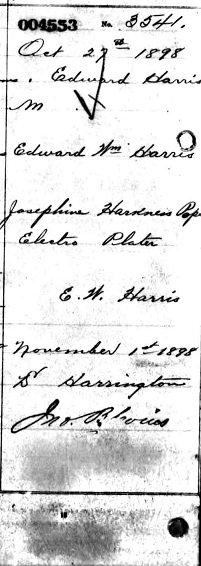 004553 No. 3541.
Oct 27th 1898
Edward Harris
m
Edward Wm Harris
Josephine Harkness Pope
Electro Plater
E. W. Harris
November 1st 1898
Dr Harrington
Jno.